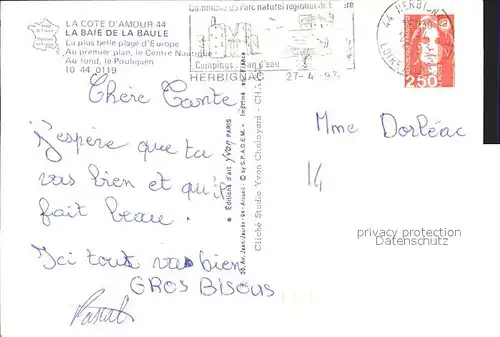 LA COTE D'AMOUR 44
LA BAIE DE LA BAULE
La plus belle plage d'Europe
Au premier plan, le Centre Nautique
Au fond, le Pouliguen
10 44 0119
Commune du Parc naturel régional de Brière
Campings plan d'eau
HERBIGNAC 27-4-92
44 HERBIGNAC
2,50
Chère Tante
J'espère que tu
vas bien et qu'il
fait beau.
Ici tout va bien
GROS BISOUS
Pascal
Editions d'art yvon PARIS
30, Av. Jean-Jaurès-94-Arcueil - © by S.P.A.D.E.M. - Imprimé en France
Cliché Studio Yvon Chaloyard
Mme Dorléac
14
privacy protection
Datenschutz